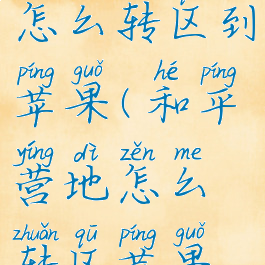 怎么转区到
píng guǒ hé píng
苹果(和平
yíng dì zěn me
营地怎么
zhuǎn qū píng guǒ
转区苹果